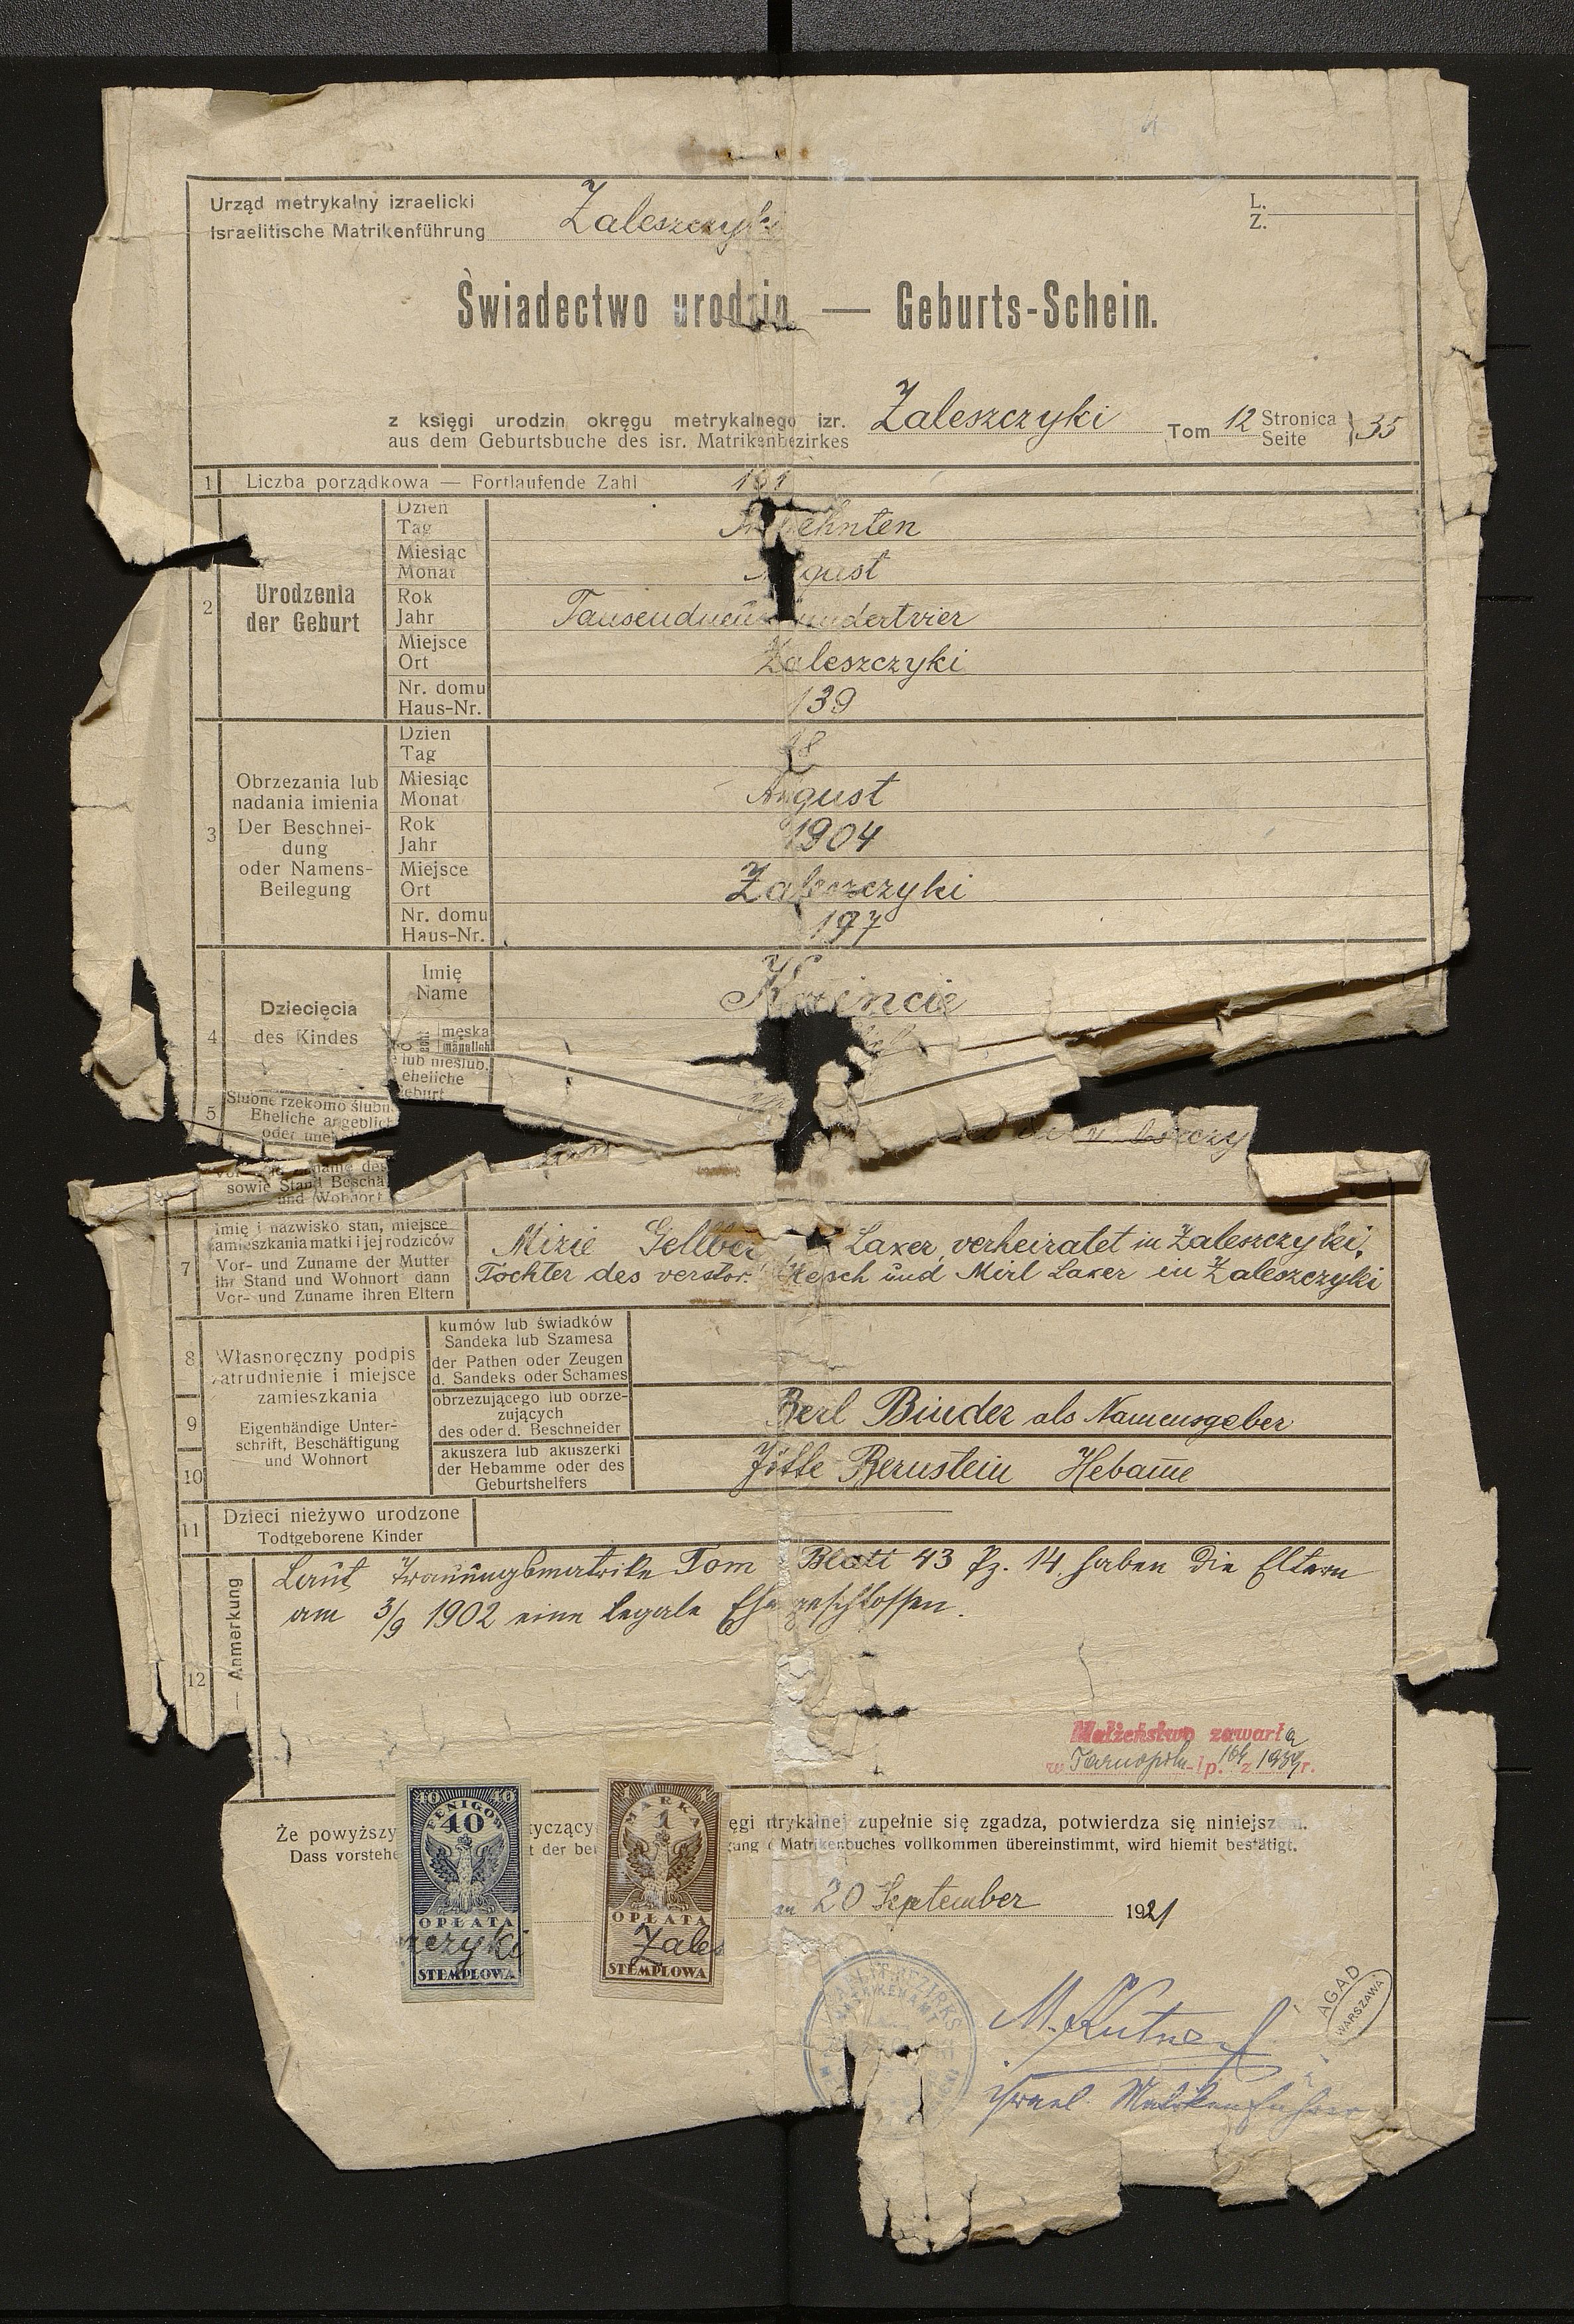 Urząd metrykalny izraelicki
Israelitische Matrikenführung
Zaleszczyki
L.
Z.
Świadectwo urodzin — Geburts-Schein.
z księgi urodzin okręgu metrykalnego izr.
aus dem Geburtsbuche des isr. Matrikenbezirkes
Zaleszczyki Tom 12 Stronica
Seite } 35
1 Liczba porządkowa — Fortlaufende Zahl
2 Urodzenia
der Geburt
Dzień
Tag
Miesiąc
Monat
August
Rok
Jahr
Miejsce
Ort
Zaleszczyki
Nr. domu
Haus-Nr.
139
3 Obrzezania lub
nadania imienia
Der Beschnei-
dung
oder Namens-
Beilegung
Dzień
Tag
Miesiąc
Monat
August
Rok
Jahr
1904
Miejsce
Ort
Zaleszczyki
Nr. domu
Haus-Nr.
197
4 Dziecięcia
des Kindes
Imię
Name
męska
männlich
lub nieślub.
eheliche
5 Ślubne rzekomo
Eheliche
oder
sowie Stand
und Wohnort
7 Imię i nazwisko stan, miejsce
zamieszkania matki i jej rodziców
Vor- und Zuname der Mutter
ihr Stand und Wohnort dann
Vor- und Zuname ihren Eltern
Mizie Laxer, verheiratet in Zaleszczyki,
Tochter des verstor. Hersch und Mirl Laxer in Zaleszczyki
Własnoręczny podpis
zatrudnienie i miejsce
zamieszkania
Eigenhändige Unter-
schrift, Beschäftigung
und Wohnort
8 kumów lub świadków
Sandeka lub Szamesa
der Pathen oder Zeugen
d. Sandeks oder Schames
9 obrzezującego lub obrze-
zujących
des oder d. Beschneider
Berl Binder als Namensgeber
10 akuszera lub akuszerki
der Hebamme oder des
Geburtshelfers
Jütte Bernstein Hebame
11 Dzieci nieżywo urodzone
Todtgeborene Kinder
12 — Anmerkung
Laut Trauungsmatrike Tom Blatt 43 Pz. 14 haben die Eltern
am 3/9 1902 eine legale Ehe geschlossen.
Małżeństwo zawarła
w Tarnopolu lp. 104 z 1939 r.
Że powyższy zupełnie się zgadza, potwierdza się niniejszem.
Dass Matrikenbuches vollkommen übereinstimmt, wird hiemit bestätigt.
40
FENIGÓW
40
OPŁATA
STEMPLOWA
1
MARKA
1
OPŁATA
Zales
STEMPLOWA
am 20 September 1921
M. Kutner
israel. Matrikenführer
AGAD
WARSZAWA